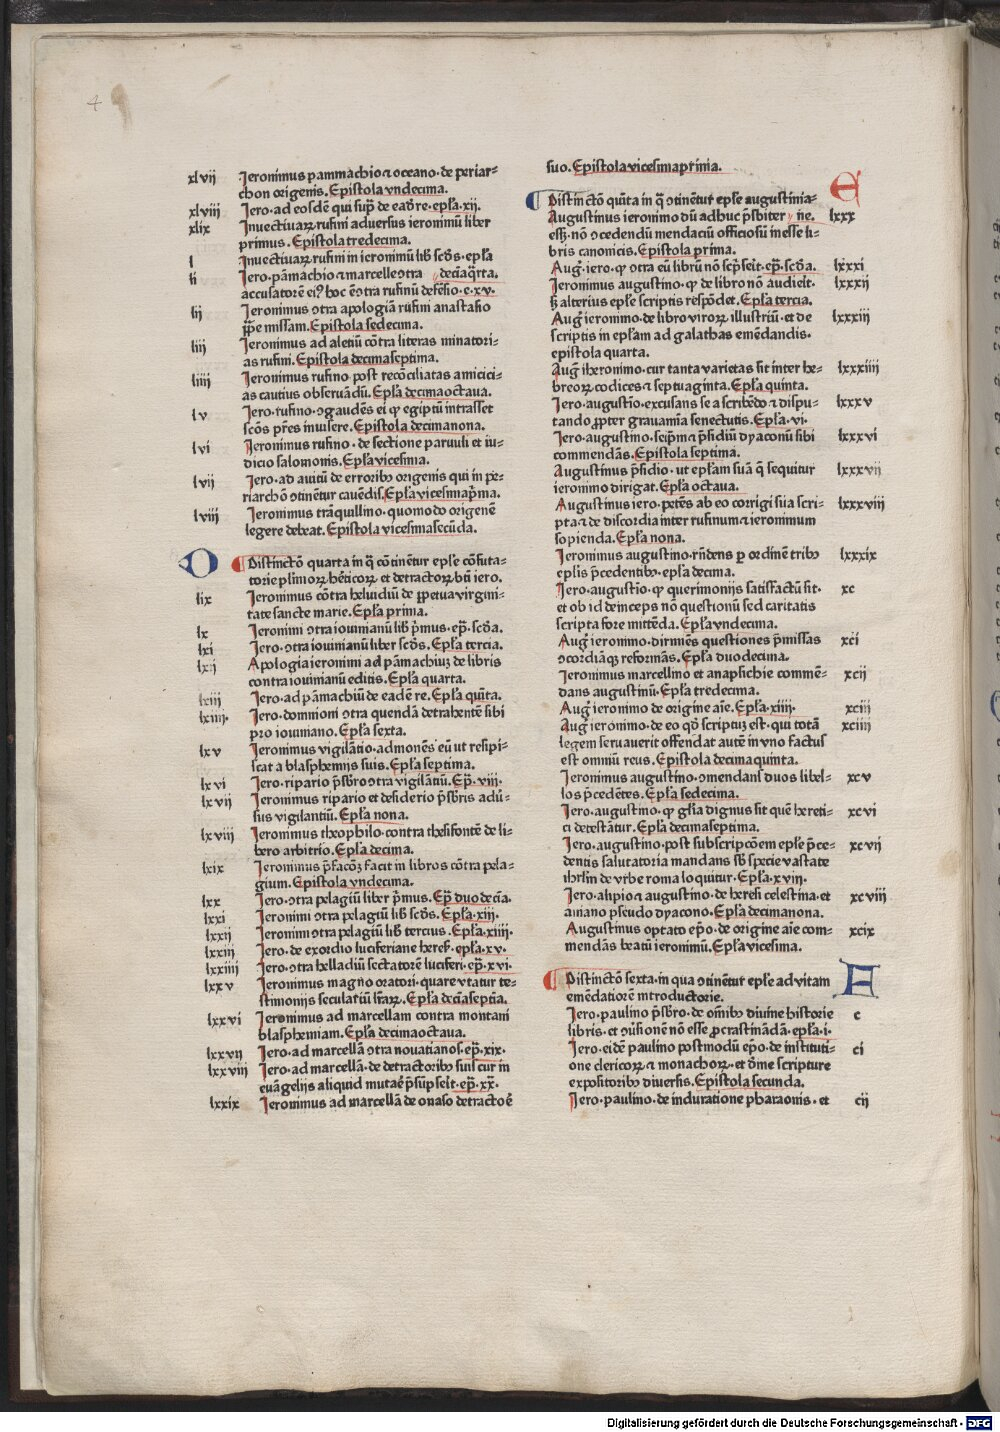 4
xlvii Jeronimus pammachio ⁊ oceano · de periar⸗
chon origenis. Epistola vndecima.
xlviii Jero · ad eosdē qui sup̄ de eadē re · epl̄a · xij.
xlix Inuectiuaꝝ rufini aduersus ieronimū liber
primus. Epistola tredecima.
l Inuectiuaꝝ rufini in ieronimū lib̄ scd̄s · epl̄a
li Jero · pāmachio ⁊ marcelle ↄtra decīaq̄rta.
accusatorē eiꝰ hoc ē ↄtra rufinū defēsio · e · xv.
lij Jeronimus ↄtra apologiā rufini anastasio
ꝓꝑe missam. Epistola sedecima.
liij Jeronimus ad aletiū cōtra literas minatori⸗
as rufini. Epistola decimaseptima.
liiij Jeronimus rufino · post recōciliatas amicici⸗
as cautius obseruādū. Epl̄a decimaoctaua.
lv Jero · rufino · ↄgaudēs ei ꝙ egiptū intrasset
scōs pr̄es inuisere. Epistola decimanona.
lvi Jeronimus rufino · de sectione paruuli et iu⸗
dicio salomonis. Epl̄a vicesima.
lvij Jero · ad auitū de erroribꝰ origenis qui in pe⸗
riarchō ↄtinētur cauēdis. Epl̄a vicesimap̄ma.
lviij Jeronimus trāquillino · quomodo origenē
legere debeat. Epistola vicesimasecūda.
D
Distinctō quarta in q̄ cōtinētur epl̄e cōfuta⸗
torie pl̄imoꝝ h̄eticoꝝ et detractoꝝ bt̄i iero.
lix Jeronimus cōtra heluidiū de ꝑpetua virgini⸗
tate sancte marie. Epl̄a prima.
lx Jeronimi ↄtra iouinianū lib̄ p̄mus · ep̄ · scd̄a.
lxi Jero · ↄtra iouinianū liber scd̄s. Epl̄a tercia.
lxij Apologia ieronimi ad pāmachiuꝫ de libris
contra iouinianū editis. Epl̄a quarta.
lxiij Jero · ad pāmachiū de eadē re. Epl̄a quīta.
lxiiij. Jero · domnioni ↄtra quendā detrahentē sibi
pro iouiniano. Epl̄a sexta.
lxv Jeronimus vigilātio · admonēs eū ut resipi⸗
scat a blasphemijs suis. Epl̄a septima.
lxvi Jero · ripario p̄sbr̄o ↄtra vigilātiū. Ep̄ · viij.
lxvij Jeronimus ripario et desiderio p̄sbr̄is adū⸗
sus vigilantiū. Epl̄a nona.
lxviij Jeronimus theophilo · contra thesifontē de li⸗
bero arbitrio. Epl̄a decima.
lxix Jeronimus p̄facōꝫ facit in libros cōtra pela⸗
gium. Epistola vndecima.
lxx Jero · ↄtra pelagiū liber p̄mus. Ep̄ duodecīa.
lxxi Jeronimi ↄtra pelagiū lib̄ scd̄s. Epl̄a · xiij.
lxxij Jeronimi ↄtra pelagiū lib̄ tercius. Epl̄a · xiiij.
lxxiij Jero · de exordio luciferiane heres̄ · epl̄a · xv.
lxxiiij Jero · ↄtra helladiū sectatorē luciferi · ep̄ · xvi.
lxxv Jeronimus magno oratori · quare vtatur te⸗
stimonijs seculariū lr̄aꝝ. Epl̄a decīaseptīa.
lxxvi Jeronimus ad marcellam contra montani
blasphemiam. Epl̄a decimaoctaua.
lxxvij Jero · ad marcellā ↄtra nouatianos · ep̄ · xix.
lxxviij Jero · ad marcellā · de detractoribꝰ suis cur in
euāgelijs aliquid mutar̄e p̄sūpserit · ep̄ · xx.
lxxix Jeronimus ad marcellā de onaso detractoē
suo. Epistola vicesimaprima.
E
Distinctō quīta in q̄ ↄtinētur epl̄e augustinia⸗
lxxx Augustinus ieronimo dū adhuc p̄sbiter ne.
esꝫ · nō ↄcedendū mendaciū officiosū inesse li⸗
bris canonicis. Epistola prima.
lxxxi Auḡ · iero · ꝙ ↄtra eū librū nō scp̄serit · ep̄ · scd̄a.
lxxxij Jeronimus augustino · ꝙ de libro nō audierit ·
ꝫ alterius epl̄e scriptis respōdet. Epl̄a tercia.
lxxxiij Auḡ ieronimo · de libro viroꝝ illustriū · et de
scriptis in epl̄am ad galathas emēdandis ·
epistola quarta.
lxxxiiij Auḡ iheronimo · cur tanta varietas sit inter he⸗
breoꝝ codices ⁊ septuaginta. Epl̄a quinta.
lxxxv Jero · augustīo · excusans se a scribēdo ⁊ dispu⸗
tando ꝓpter grauamīa senectutis. Epl̄a · vi.
lxxxvi Jero · augustino · seip̄m ⁊ p̄sidiū dyaconū sibi
commendās. Epistola septima.
lxxxvij Augustinus p̄sidio · ut epl̄am suā q̄ sequitur
ieronimo dirigat. Epl̄a octaua.
lxxxviij Augustinus iero · petēs ab eo corrigi sua scri⸗
pta ⁊ de discordia inter rufinum ⁊ ieronimum
sopienda. Epl̄a nona.
lxxxix Jeronimus augustino · rn̄dens ꝑ ordinē tribꝰ
epl̄is p̄cedentibꝰ · epl̄a decima.
xc Jero · augustīo · ꝙ querimonijs satisfactū sit ·
et ob id deinceps nō questionū sed caritatis
scripta fore mittēda. Epl̄a vndecima.
xci Auḡ ieronimo · dirimēs questiones p̄missas
ↄcordiāqꝫ reformās. Epl̄a duodecima.
xcij Jeronimus marcellino et anapsichie commē⸗
dans augustinū. Epl̄a tredecima.
xciij Auḡ ieronimo de origine aīe. Epl̄a · xiiij.
xciiij Auḡ ieronimo · de eo qd̄ scriptuꝫ est · qui totā
legem seruauerit offendat autē in vno factus
est omniū reus. Epistola decimaquinta.
xcv Jeronimus augustino · ↄmendans duos libel⸗
los p̄cedētes. Epl̄a sedecima.
xcvi Jero · augustino · ꝙ gl̄ia dignus sit quē hereti⸗
ci detestātur. Epl̄a decimaseptima.
xcvij Jero · augustino · post subscripcōem epl̄e p̄ce⸗
dentis salutatoria mandans sb̄ specie vastate
ihrl̄m de vrbe roma loquitur. Epl̄a · xviij.
xcviij Jero · alipio ⁊ augustino · de heresi celestina · et
aniano pseudo dyacono. Epl̄a decimanona.
xcix Augustinus optato ep̄o · de origine aīe com⸗
mendās beatū ieronimū. Epl̄a vicesima.
F
Distinctō sexta · in qua ↄtinētur epl̄e ad vitam
emēdatiorē introductorie.
c Jero · paulino p̄sbr̄o · de om̄ibꝰ diuine historie
libris · et ↄuersionē nō esse ꝓcrastinādā · epl̄a · i.
ci Jero · eidē paulino postmodū ep̄o · de instituti⸗
one clericoꝝ ⁊ monachoꝝ · et diuīe scripture
expositoribꝰ diuersis. Epistola secunda.
cij Jero · paulino · de induratione pharaonis · et
Digitalisierung gefördert durch die Deutsche Forschungsgemeinschaft - DFG